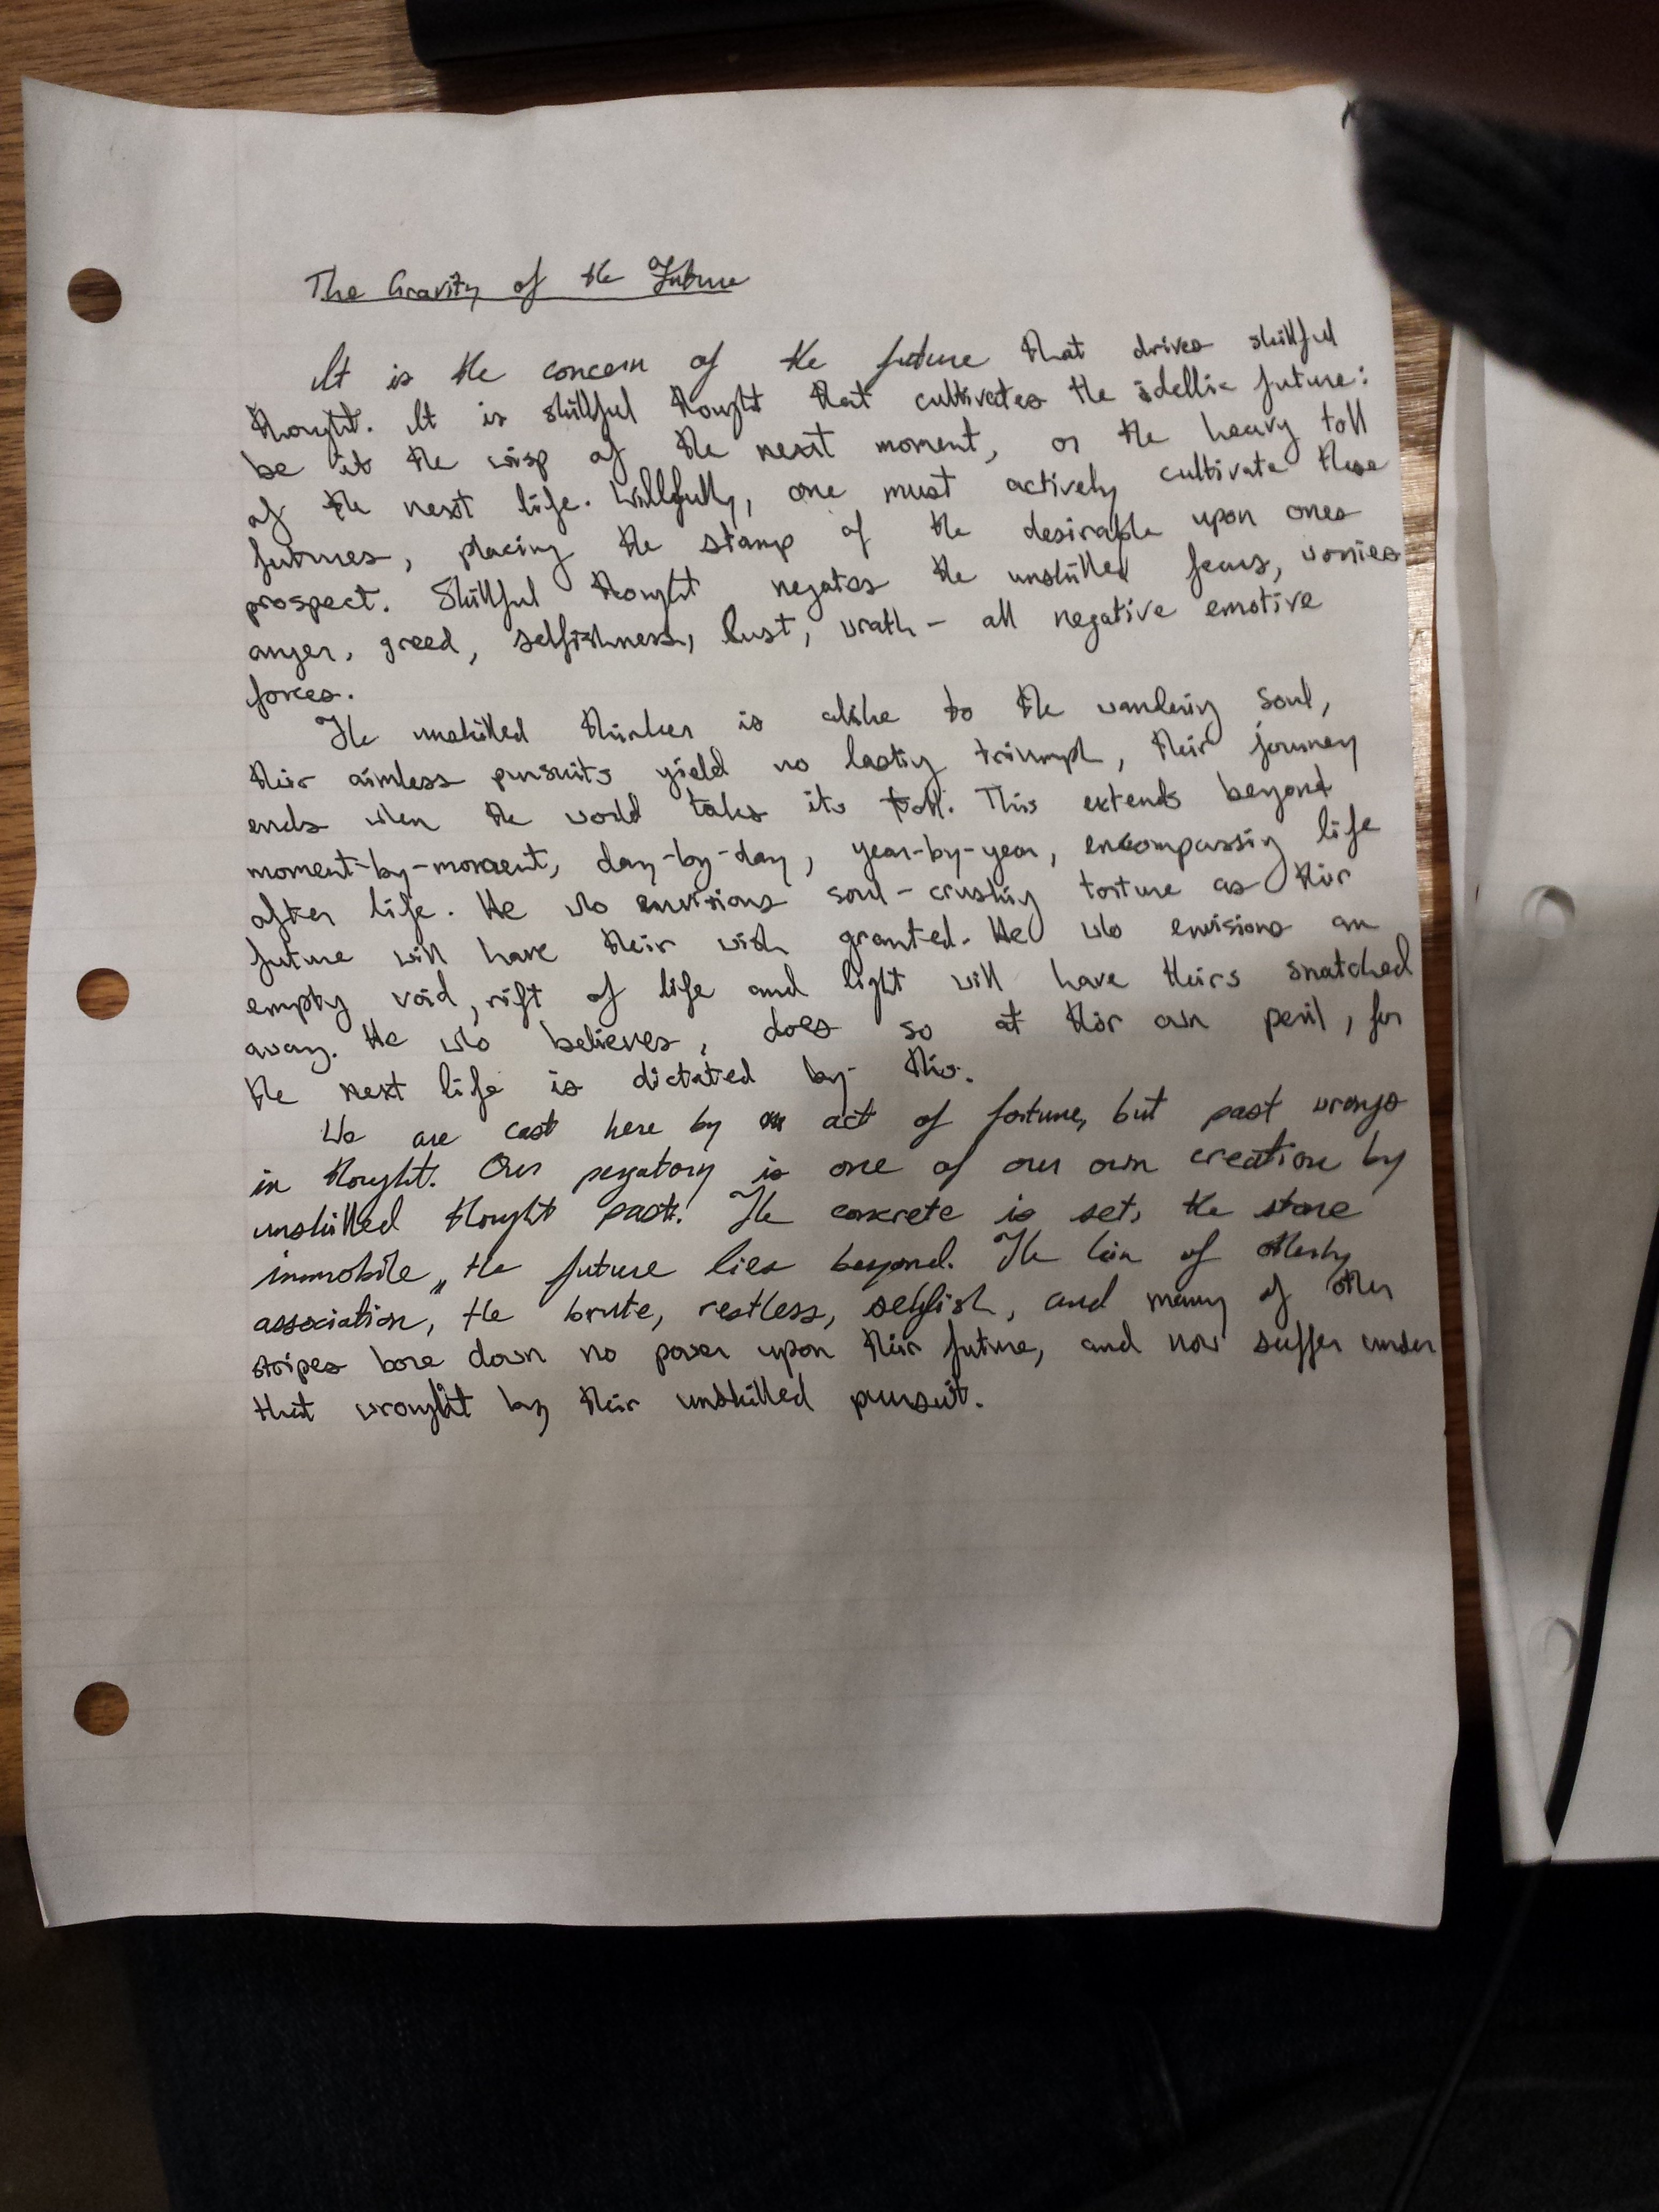 The Gravity of the Future
It is the concern of the future that drives skillful
thought. It is skillful thought that cultivates the idellic future:
be it the wisp of the next moment, or the heavy toll
of the next life. Willfully, one must actively cultivate these
futures, placing the stamp of the desirable upon ones
prospect. Skillful thought negates the unskilled fears, worries
anger, greed, selfishness, lust, wrath - all negative emotive
forces.
The unskilled thinker is alike to the wandering soul,
their aimless pursuits yield no lasting triumph, their journey
ends when the world takes its toll. This extends beyond
moment-by-moment, day-by-day, year-by-year, encompassing life
after life. He who envisions soul-crushing torture as their
future will have their wish granted. He who envisions an
empty void, rift of life and light will have theirs snatched
away. He who believes, does so at their own peril, for
the next life is dictated by this.
We are cast here by act of fortune, but past wrongs
in thought. Our purgatory is one of our own creation by
unskilled thought past. The concrete is set, the stone
immobile, the future lies beyond. The of
association, the brute, restless, selfish, and many of other
stripes bore down no power upon their future, and now suffer under
that wrought by their unskilled pursuit.